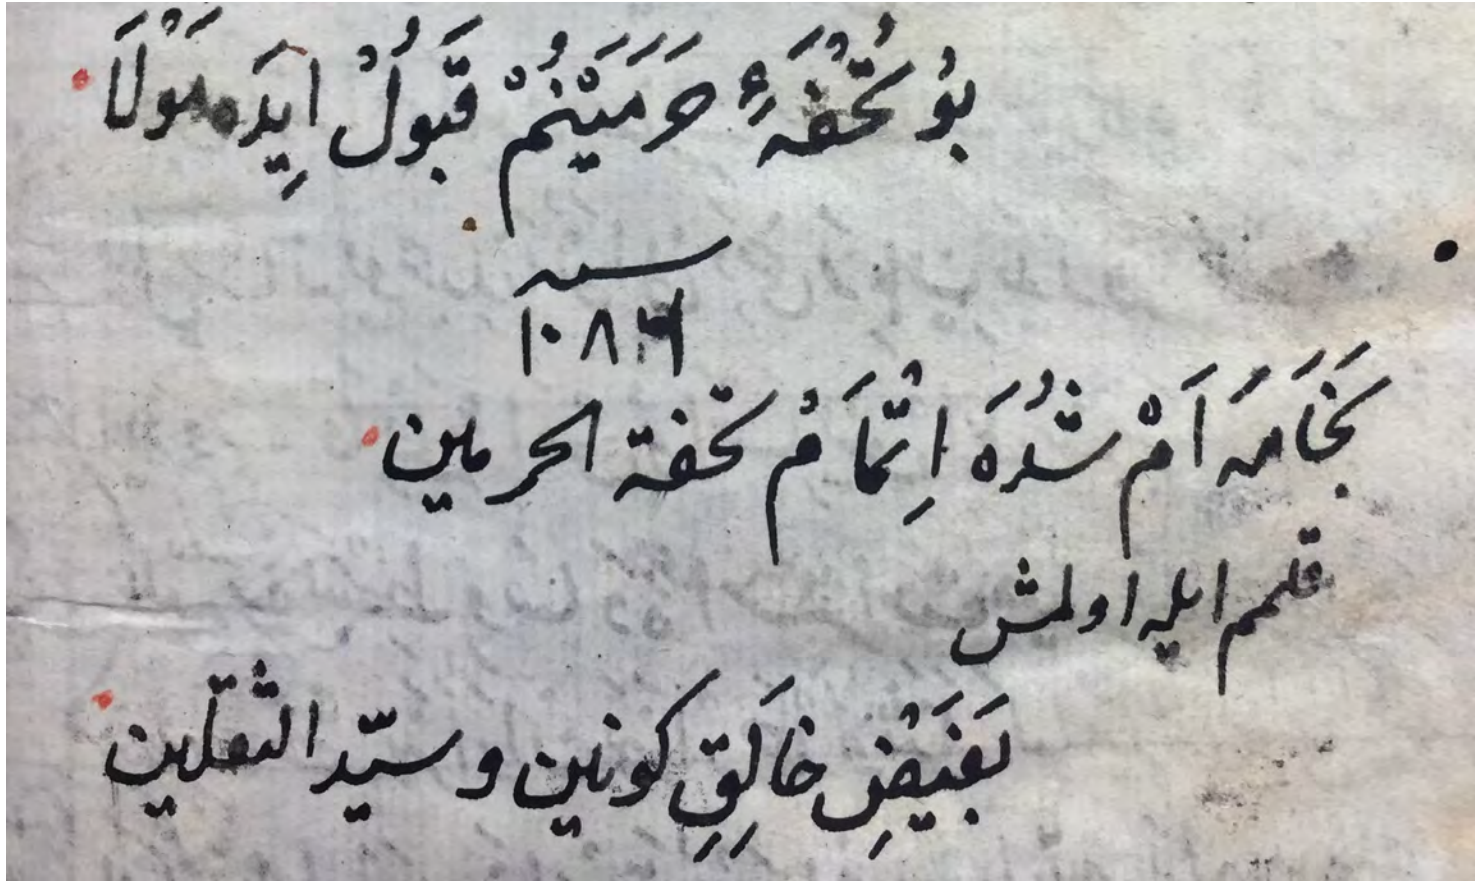 بُو تُحْفَهٔ حَرَمَيْنُمْ قَبُولْ ايِدَه مَوْلَا
سنه
١٠٨٩
بَخَامَهٔ اَمْ شُدَهْ اِتْمَامُ تحفة الحرمين
قلمم ايله اولمش
بَفَيْضِ خَالِقِ كونين و سيّد الثقلين